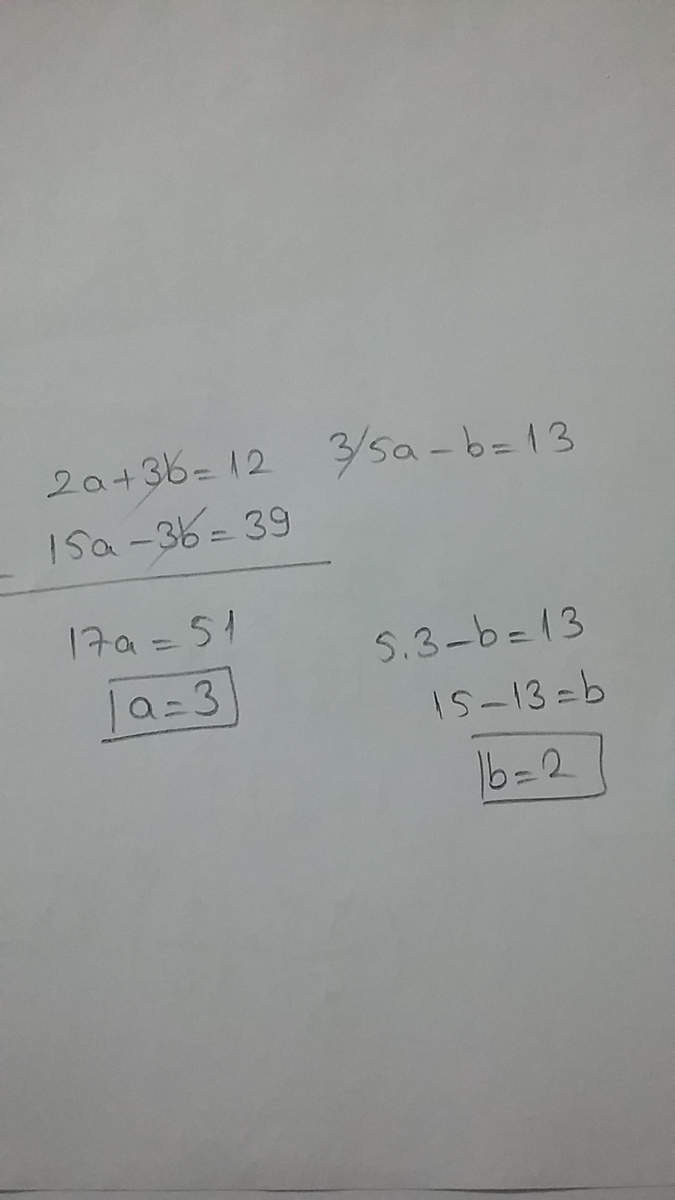 2a+3b=12 3/5a-b=13
15a-3b=39
-
17a=51
a=3
5.3-b=13
15-13=b
b=2